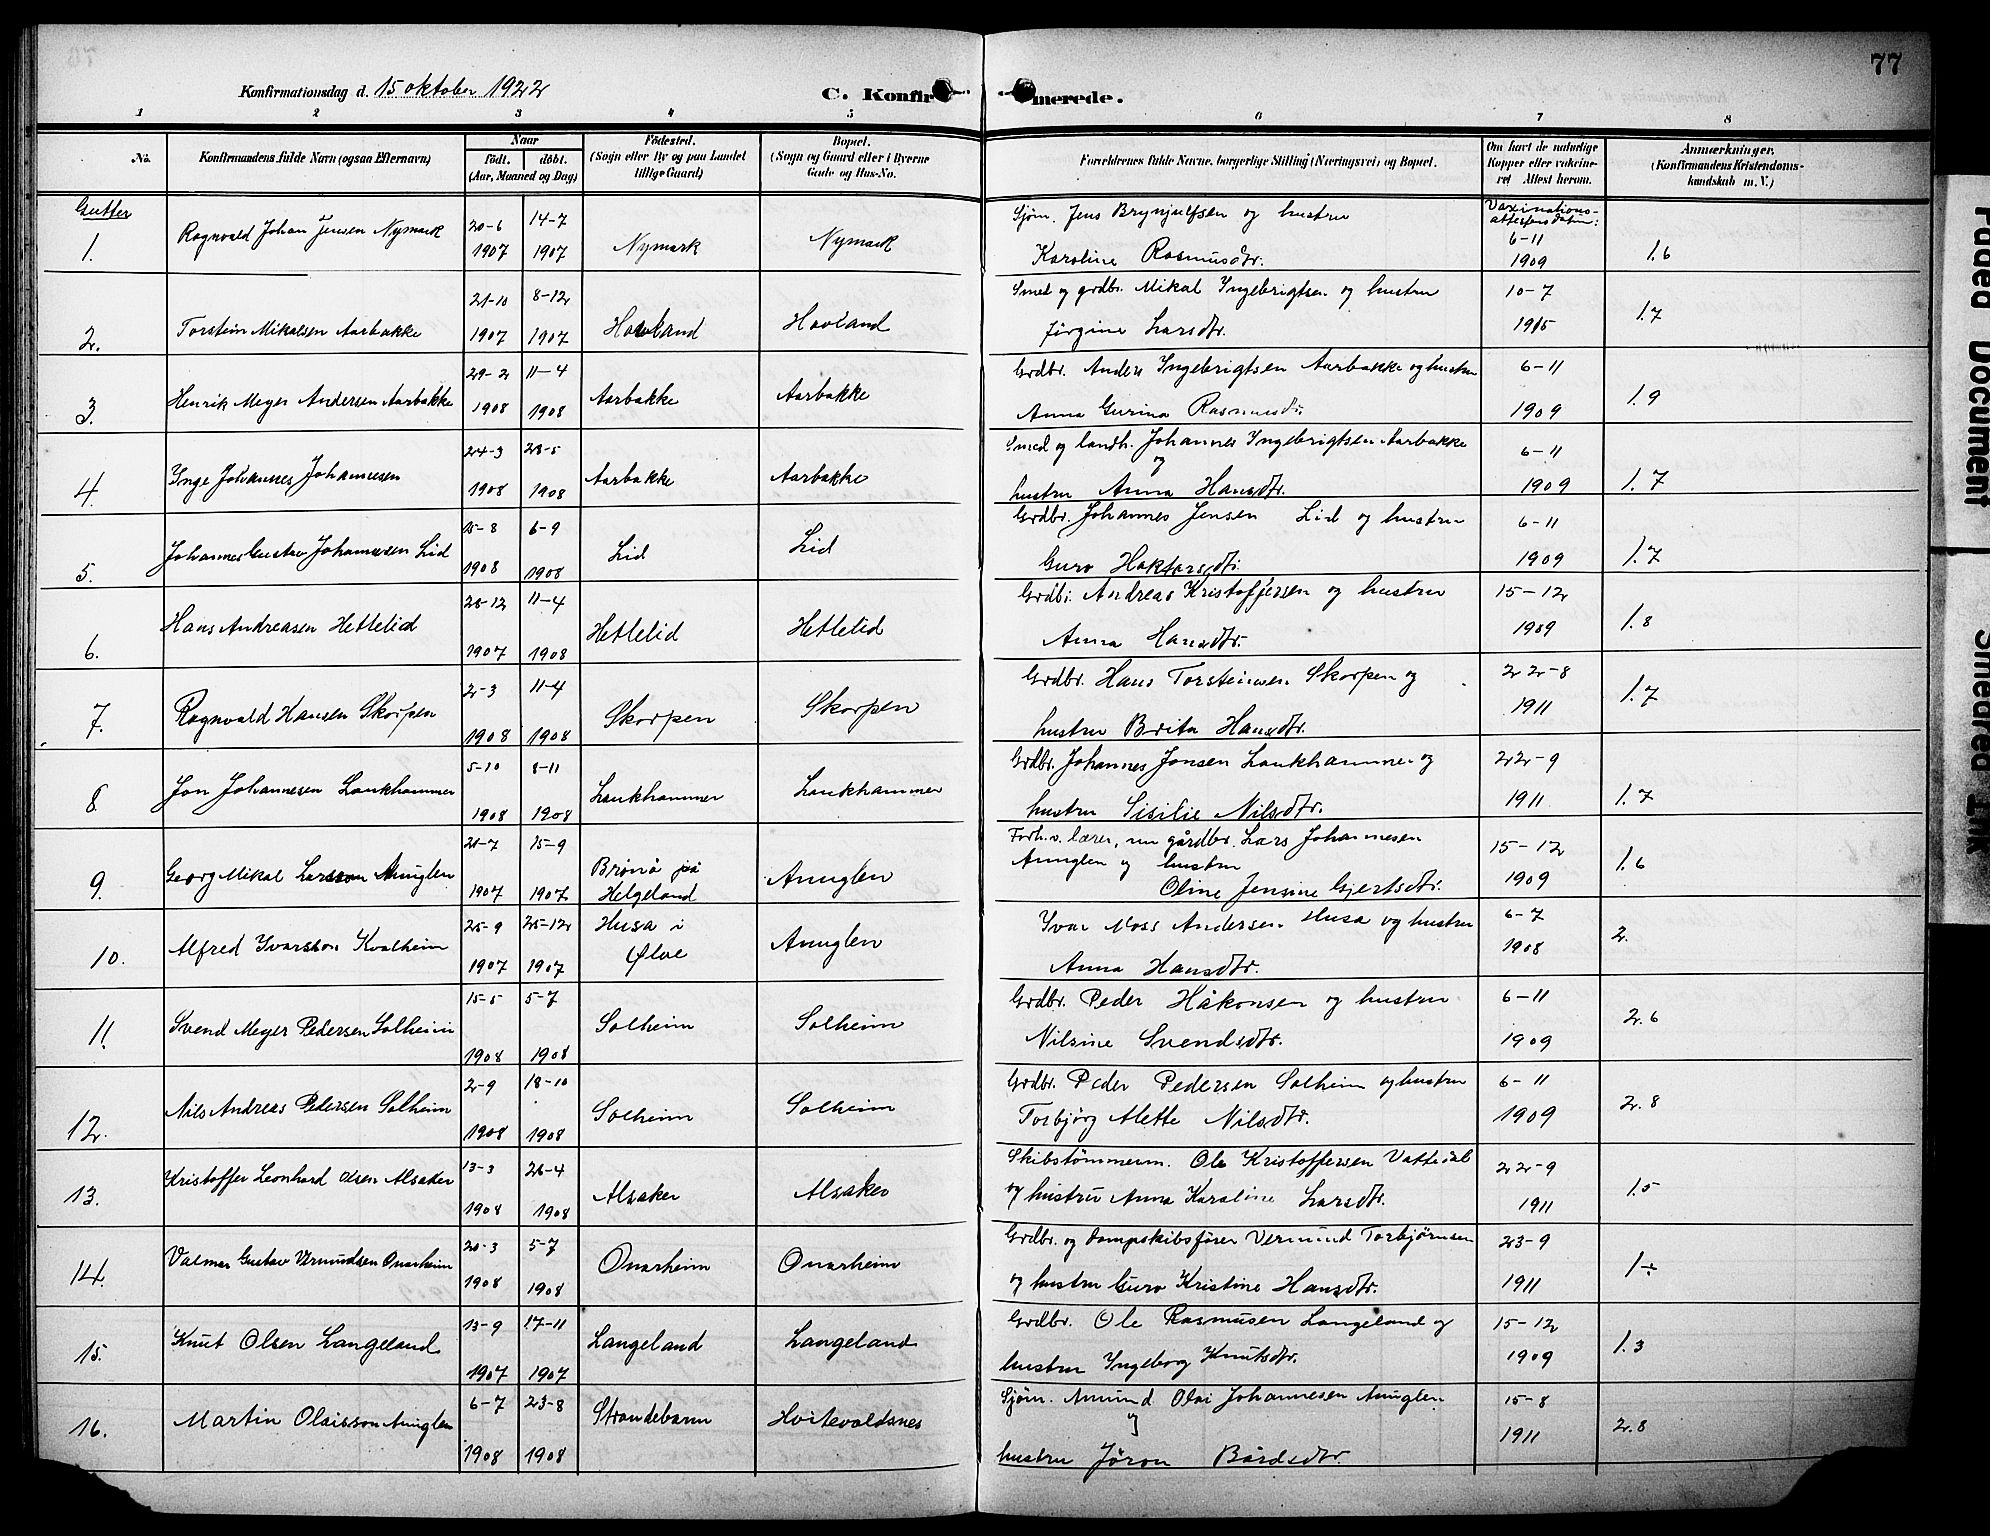 77
Konfirmationsdag d. 15 oktober 1922
C. Konfirmerede.
1 2 3 4 5 6 7 8
No. Konfirmandens fulde Navn (ogsaa Efternavn) Naar født. døbt. (Aar, Maaned og Dag) Fødested. (Sogn eller By og paa Landet tillige Gaard) Bopæl. (Sogn og Gaard eller i Byerne Gade og Hus-No. Forældrenes fulde Navne, borgerlige Stilling (Næringsvei) og Bopæl. Om havt de naturlige Kopper eller vakcineret Attest herom. Anmærkninger. (Konfirmandens Kristendomskundskab m. V.)
Gutter
1. Ragnvald Johan Jensen Nymark 20-6 1907 14-7 1907 Nymark Nymark Sjøm. Jens Brynjulfsen og hustru Karoline Rasmusdtr. Vaxinationsattestens datum: 6-11 1909 1.6
2. Torstein Mikalsen Aarbakke 21-10 1907 8-12 1907 Hovland Hovland Smed og grdbr. Mikal Ingebrigtsen og hustru Jørgine Larsdtr. 10-7 1915 1.7
3. Henrik Meyer Andersen Aarbakke 29-2 1908 11-4 1908 Aarbakke Aarbakke Grdbr. Anders Ingebrigtsen Aarbakke og hustru Anna Gurina Rasmusdtr 6-11 1909 1.9
4. Inge Johannes Johannesen 24-3 1908 28-5 1908 Aarbakke Aarbakke Smed og landh. Johannes Ingebrigtsen Aarbakke og hustru Anna Hansdtr. 6-11 1909 1.7
5. Johannes Gustav Johannesen Lid 15-8 1908 6-9 1908 Lid Lid Grdbr. Johannes Jensen Lid og hustru Guro Haktorsdtr. 6-11 1909 1.7
6. Hans Andreasen Hettelid 28-12 1907 11-4 1908 Hettelid Hettelid Grdbr. Andreas Kristoffersen og hustru Anna Hansdtr. 15-12 1909 1.8
7. Ragnvald Hansen Skorpen 2-3 1908 11-4 1908 Skorpen Skorpen Grdbr. Hans Torsteinsen Skorpen og hustru Brita Hansdtr. 22-8 1911 1.7
8. Jon Johannesen Laukhammer 5-10 1908 8-11 1908 Laukhammer Laukhammer Grdbr. Johannes Jonsen Laukhammer og hustru Sisilie Nilsdtr. 22-9 1911 1.7
9. Georg Mikal Larsson Anuglen 21-7 1907 15-9 1907 Brønø på Helgeland Anuglen Forh.v. lærer, nu gårdbr. Lars Johannesen Anuglen og hustru Oline Jensine Gjertsdtr. 15-12 1909 1.6
10. Alfred Ivarsson Kvalheim 25-9 1907 25-12 1907 Husa i Ølve Anuglen Ivar Moss Andersen Husa og hustru Anna Hansdtr. 6-7 1908 2.
11. Svend Meyer Pedersen Solheim 15-5 1908 5-7 1908 Solheim Solheim Grdbr. Peder Håkonsen og hustru Nilsine Svendsdtr. 6-11 1909 2.6
12. Nils Andreas Pedersen Solheim 2-9 1908 18-10 1908 Solheim Solheim Grdbr. Peder Pedersen Solheim og hustru Torbjørg Alette Nilsdtr. 6-11 1909 2.8
13. Kristoffer Leonhard Olsen Alsaker 13-3 1908 26-4 1908 Alsaker Alsaker Skibstømmerm. Ole Kristoffersen Vattedal og hustru Anna Karoline Larsdtr. 22-9 1911 1.5
14. Valmar Gustav Vermundsen Onarheim 20-3 1908 5-7 1908 Onarheim Onarheim Grdbr. og dampskibsfører Vermund Torbjørnsen og hustru Guro Kristine Hansdtr. 23-9 1911 1÷
15. Knut Olsen Langeland 13-9 1907 17-11 1907 Langeland Langeland Grdbr. Ole Rasmusen Langeland og hustru Ingeborg Knutsdtr. 15-12 1909 1.3
16. Martin Olaisson Anuglen 6-7 1908 23-8 1908 Strandebarm Hvitevoldsnes Sjøm. Amund Olai Johannesen Anuglen og hustru Jøron Bårdsdtr. 15-8 1911 2.8
Faded Document
Smeared Ink